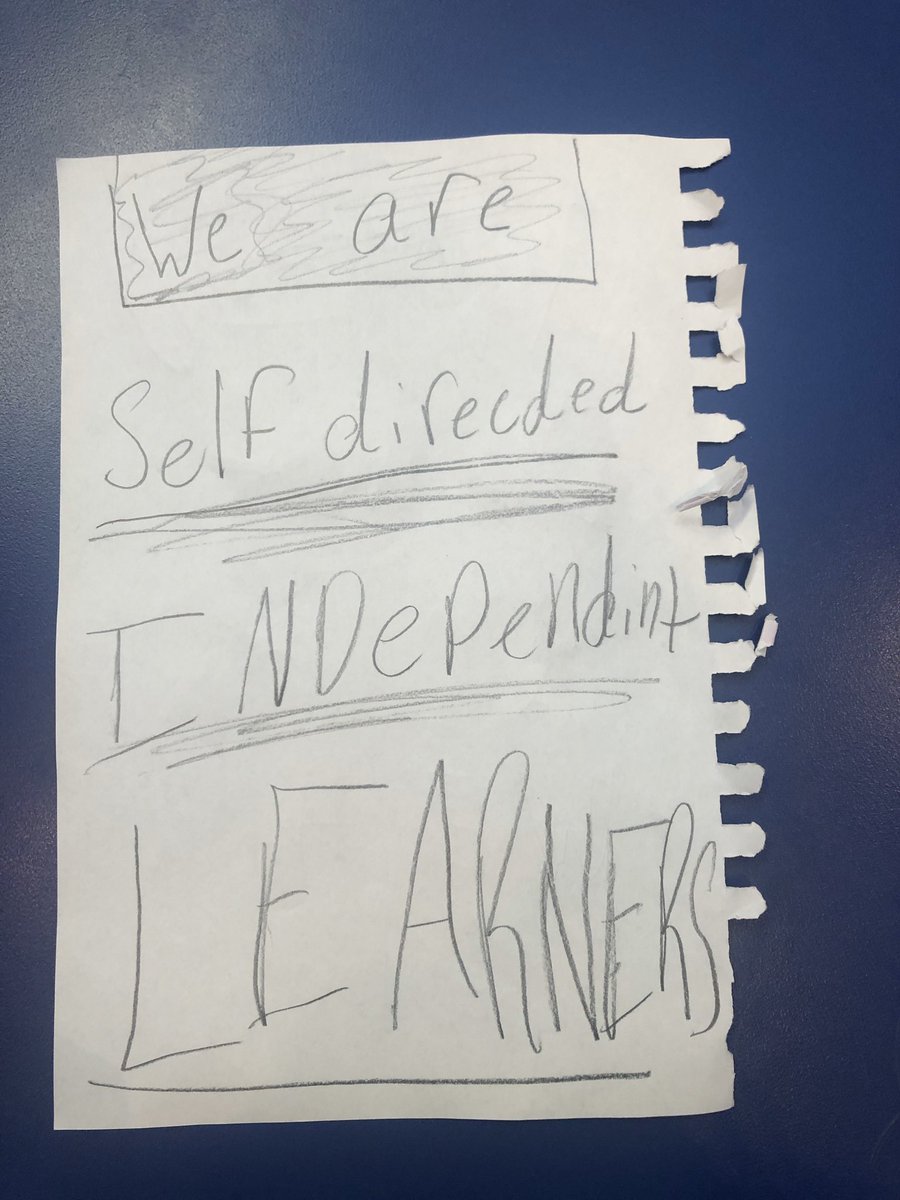 We are
Self directed
INDePendint
LEARNERS